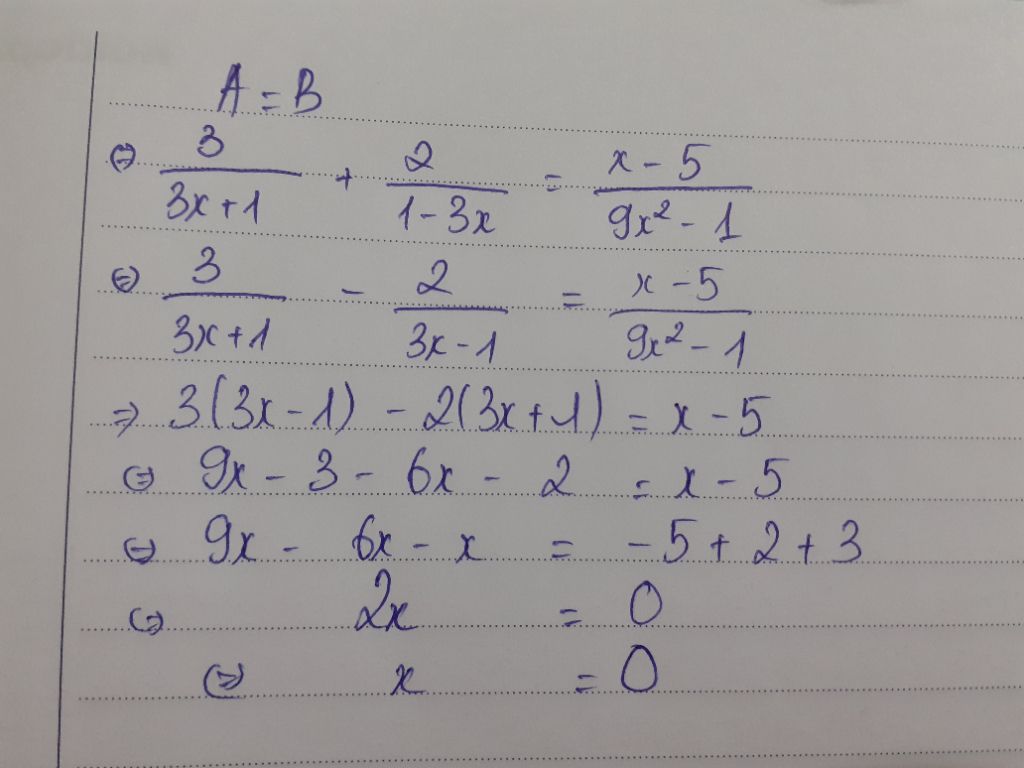 A = B
⇔ 3/(3x+1) + 2/(1-3x) = (x-5)/(9x²-1)
⇔ 3/(3x+1) - 2/(3x-1) = (x-5)/(9x²-1)
⇒ 3(3x-1) - 2(3x+1) = x-5
⇔ 9x - 3 - 6x - 2 = x - 5
⇔ 9x - 6x - x = -5 + 2 + 3
⇔ 2x = 0
⇔ x = 0